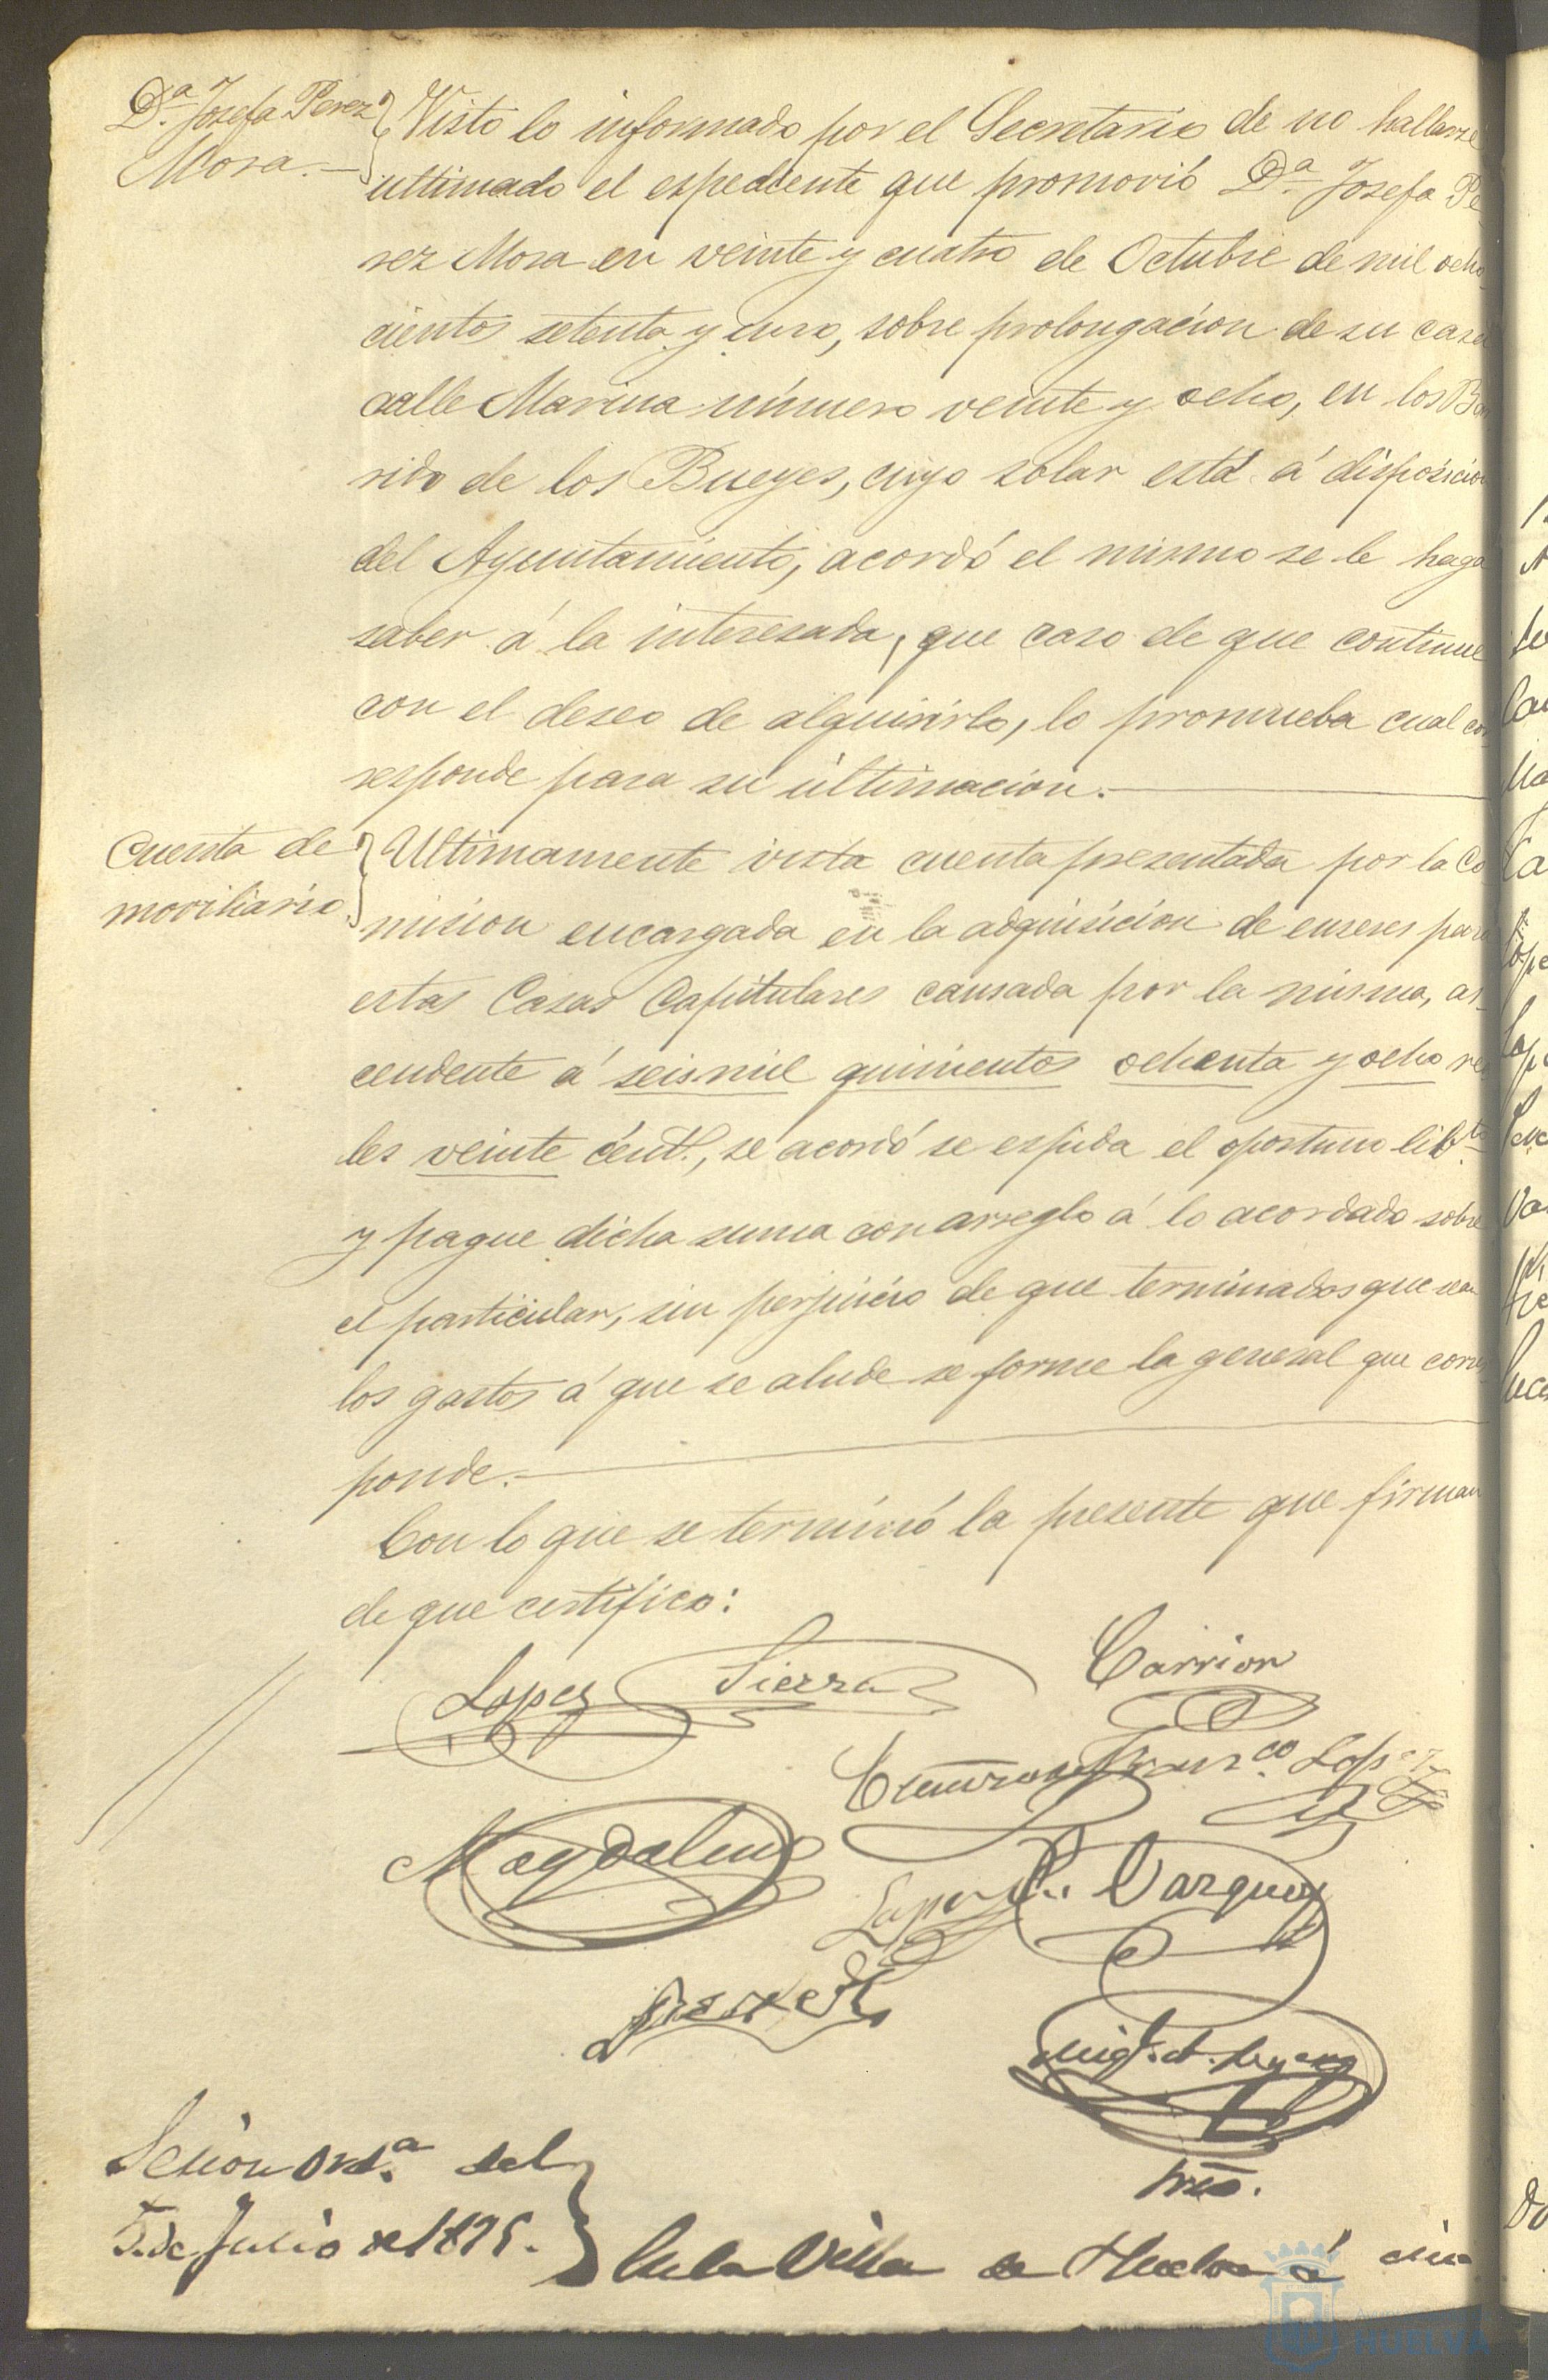 D.ª Josefa Perez
Mora.—
Visto lo informado por el Secretario de no hallarse
ultimado el espediente que promovió D.ª Josefa Pe
rez Mora en veinte y cuatro de Octubre de mil ocho
cientos setenta y uno, sobre prolongacion de su casa
calle Marina número veinte y ocho, en los Ba
rido de los Bueyes, cuyo solar está á disposicion
del Ayuntamiento, acordó el mismo se le haga
saber á la interesada, que caso de que continue
con el deseo de alquirirlo, lo promueba cual cor
responde para su ultimacion.—
Cuenta de
moviliario.
Ultimamente vista cuenta presentada por la Co
mision encargada en la adquisicion de enseres para
estas Casas Capitulares causada por la misma, as
cendente á seis mil quinientos ochenta y ocho rea
les veinte cént.s, se acordó se espida el oportuno lib.to
y pague dicha suma con arreglo á lo acordado sobre
el particular, sin perjuicio de que terminados que sean
los gastos á que se alude se forme la general que corres
ponde.—
Con lo que se terminó la presente que firman
de que certifico:
Lopez Sierra Carrion
Franc.co Lopez
Magdalena
Lopez Vazquez
Srio.
Sesion Ord.ª del
5 de Julio de 1875.
En la Villa de Huelva á cin
HUELVA